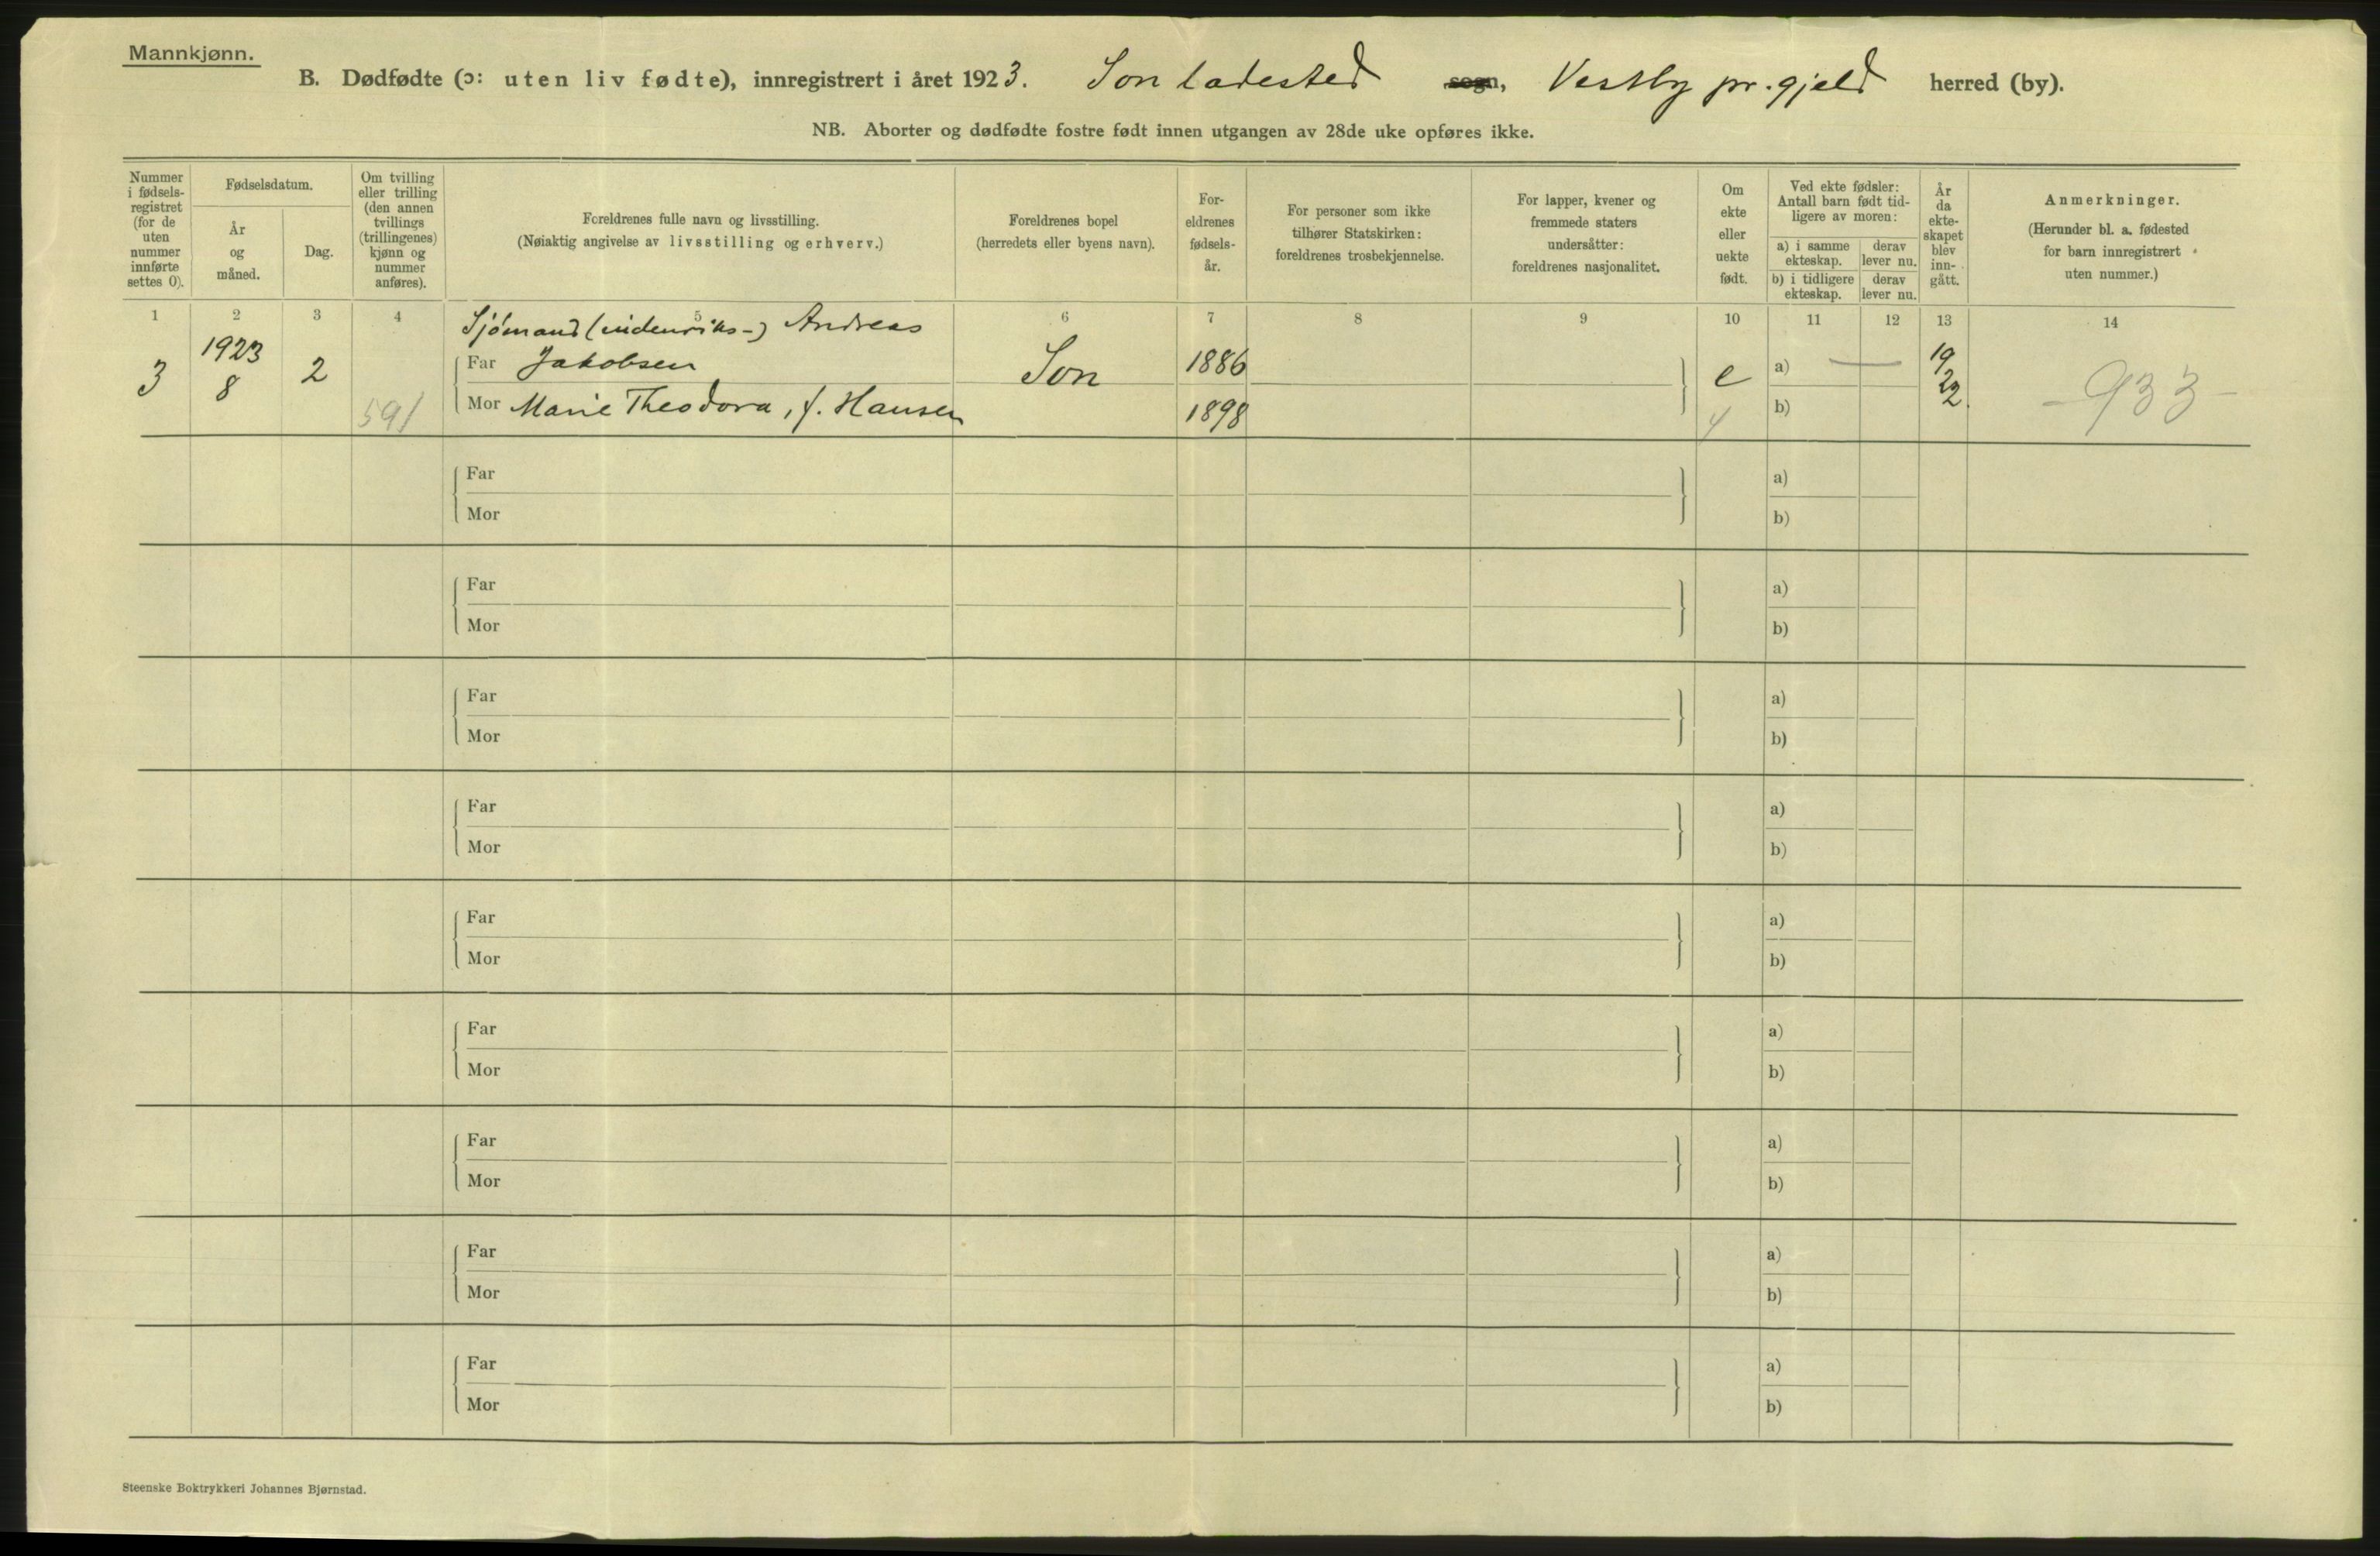 Mannkjønn.
B. Dødfødte (ɔ: uten liv fødte), innregistrert i året 1923. Son ladested sogn, Vestby pr.gjeld herred (by).
NB. Aborter og dødfødte fostre født innen utgangen av 28de uke opføres ikke.
Nummer i fødsels-registret (for de uten nummer innførte settes 0).
Fødselsdatum.
År og måned.
Dag.
Om tvilling eller trilling (den annen tvillings (trillingenes) kjønn og nummer anføres).
Foreldrenes fulle navn og livsstilling.
(Nøiaktig angivelse av livsstilling og erhverv.)
Foreldrenes bopel
(herredets eller byens navn).
For-eldrenes fødsels-år.
For personer som ikke tilhører Statskirken: foreldrenes trosbekjennelse.
For lapper, kvener og fremmede staters undersåtter: foreldrenes nasjonalitet.
Om ekte eller uekte født.
Ved ekte fødsler: Antall barn født tid-ligere av moren:
a) i samme ekteskap.
derav lever nu.
b) i tidligere ekteskap.
derav lever nu.
År da ekte-skapet blev inn-gått.
Anmerkninger.
(Herunder bl. a. fødested for barn innregistrert uten nummer.)
1 2 3 4 5 6 7 8 9 10 11 12 13 14
Sjømand (indenriks-) Andreas
3 1923 8 2 Far Jakobsen Son 1886 e a) — 19 22.
591 Mor Marie Theodora, f. Hansen 1898 b) - 933 -
Far a)
Mor b)
Far a)
Mor b)
Far a)
Mor b)
Far a)
Mor b)
Far a)
Mor b)
Far a)
Mor b)
Far a)
Mor b)
Far a)
Mor b)
Far a)
Mor b)
Steenske Boktrykkeri Johannes Bjørnstad.